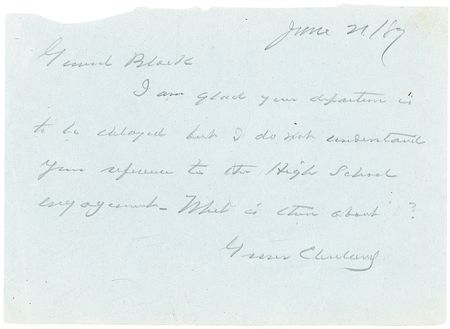 June 21/87
General Black
I am glad your departure is
to be delayed but I do not understand
your reference to the High School
engagement— What is there about ?
Grover Cleveland